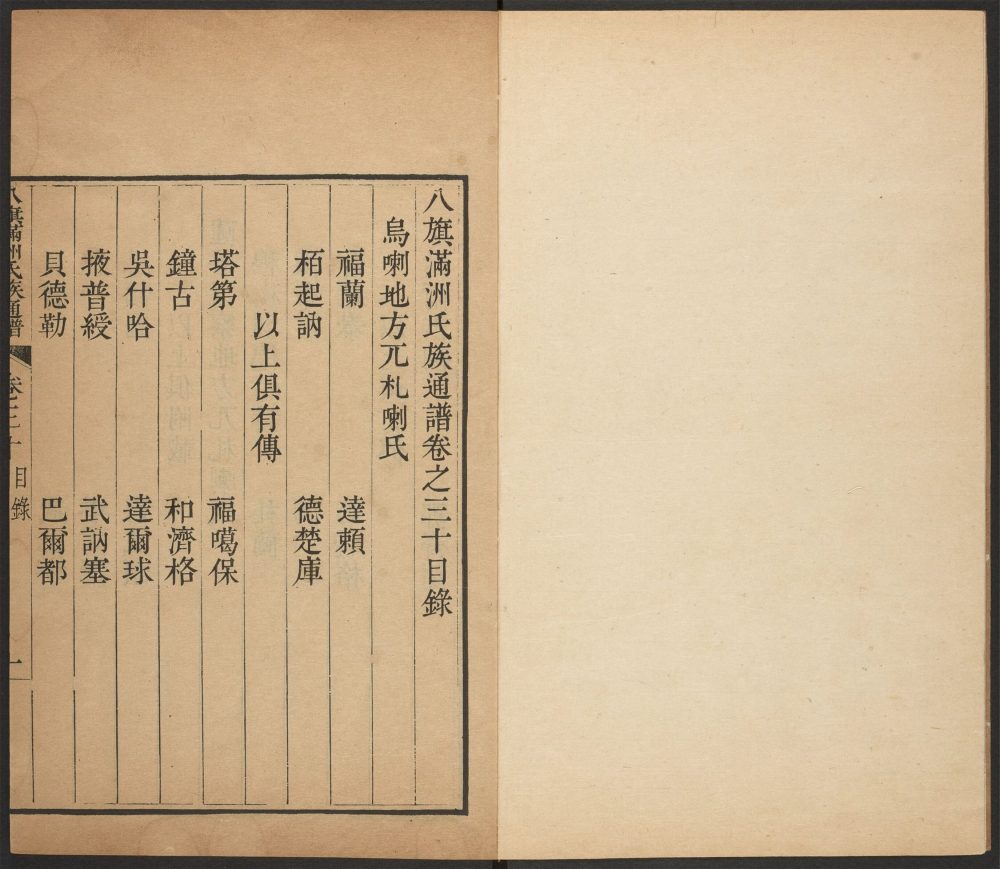 八旗滿洲氏族通譜卷之三十目錄
烏喇地方兀札喇氏
福蘭 達賴
栢起訥 德楚庫
以上俱有傳
塔第 福噶保
鐘古 和濟格
吳什哈 達爾球
掖普綬 武訥塞
貝德勒 巴爾都
八旗滿洲氏族通譜 卷之三十 目錄 一